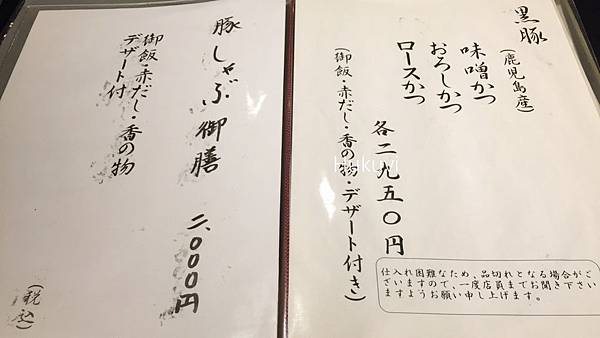 黒豚
(鹿児島産)
味噌かつ
おろしかつ
ロースかつ
各二九五〇円
(御飯・赤だし・香の物・デザート付き)
仕入れ困難なため、品切れとなる場合がご
ざいますので、一度店員までお聞き下さい
ますようお願い申し上げます。
豚しゃぶ御膳
二、〇〇〇円
御飯・赤だし・香の物
デザート付
(税込)